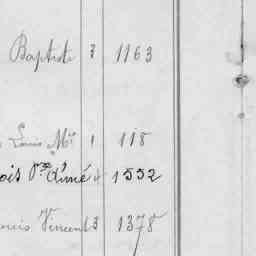 Baptiste 3 1163
Louis Mie 1 118
ois Vre Aimé 4 1552
ouis Vincent 3 1378